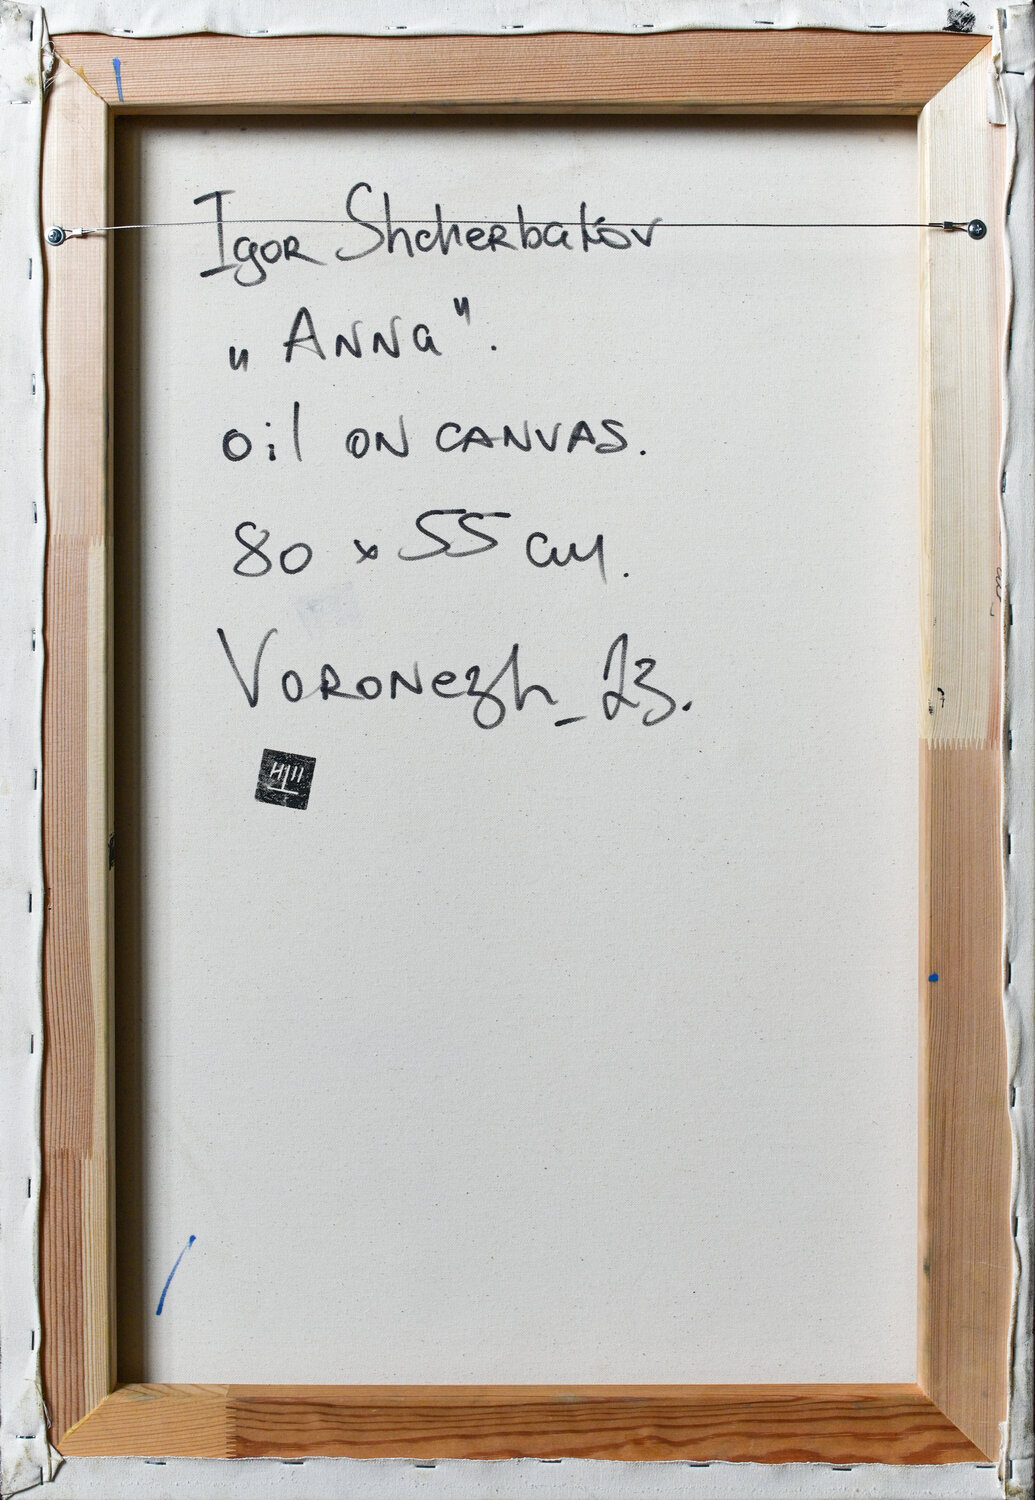 Igor Shcherbakov
„Anna".
oil on canvas.
80 x 55 cm.
Voronezh_23.